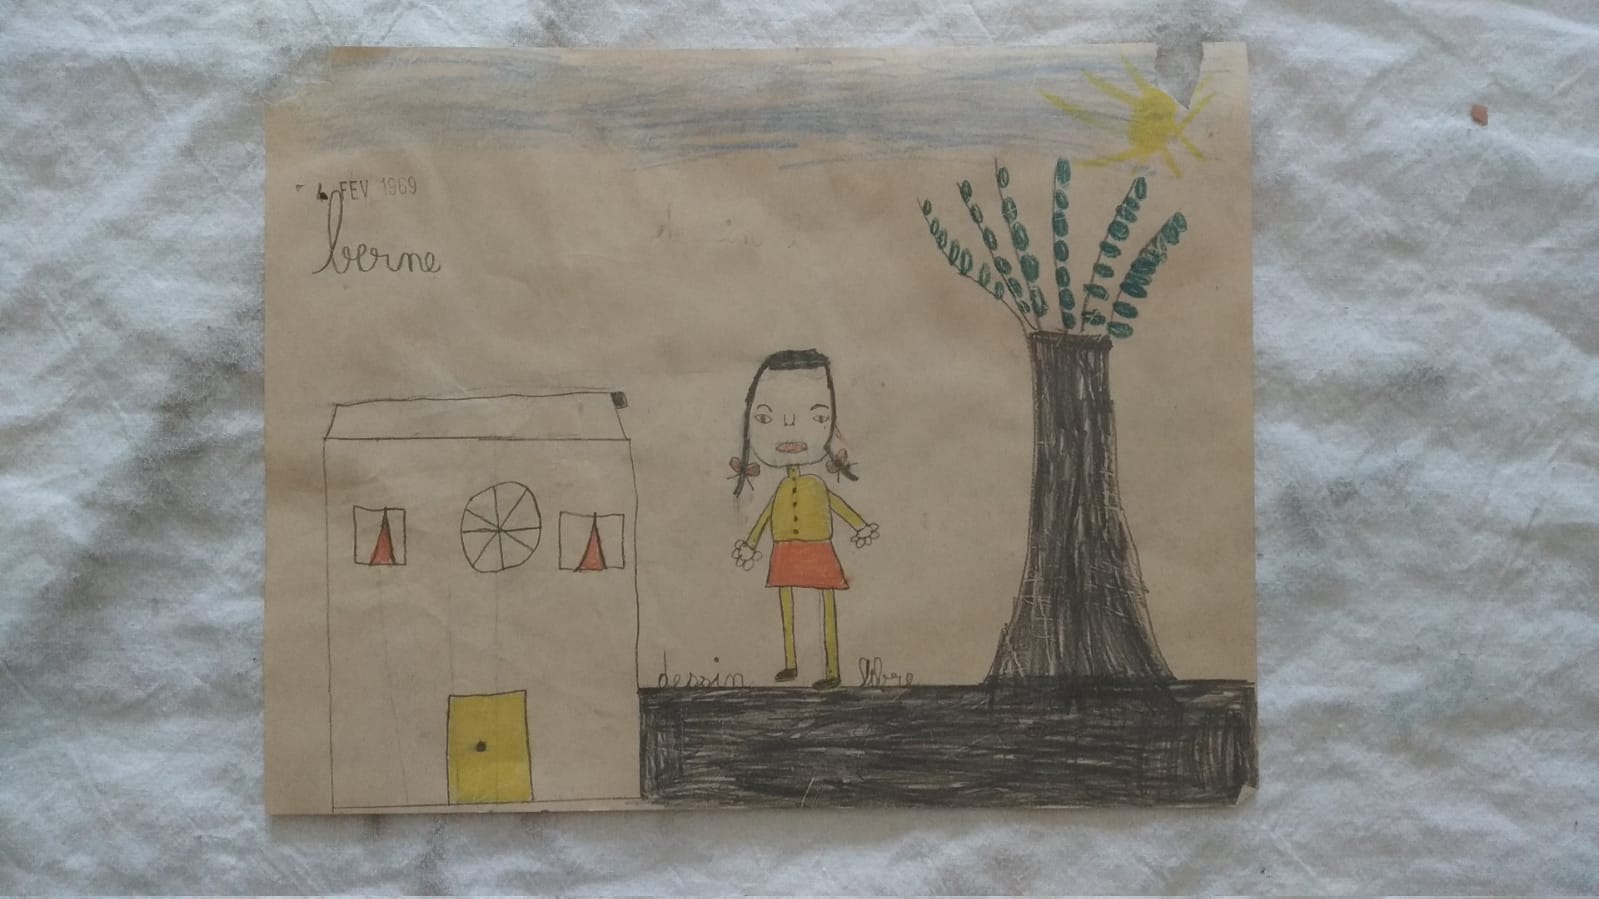 4 FEV 1969
berne
dessin libre